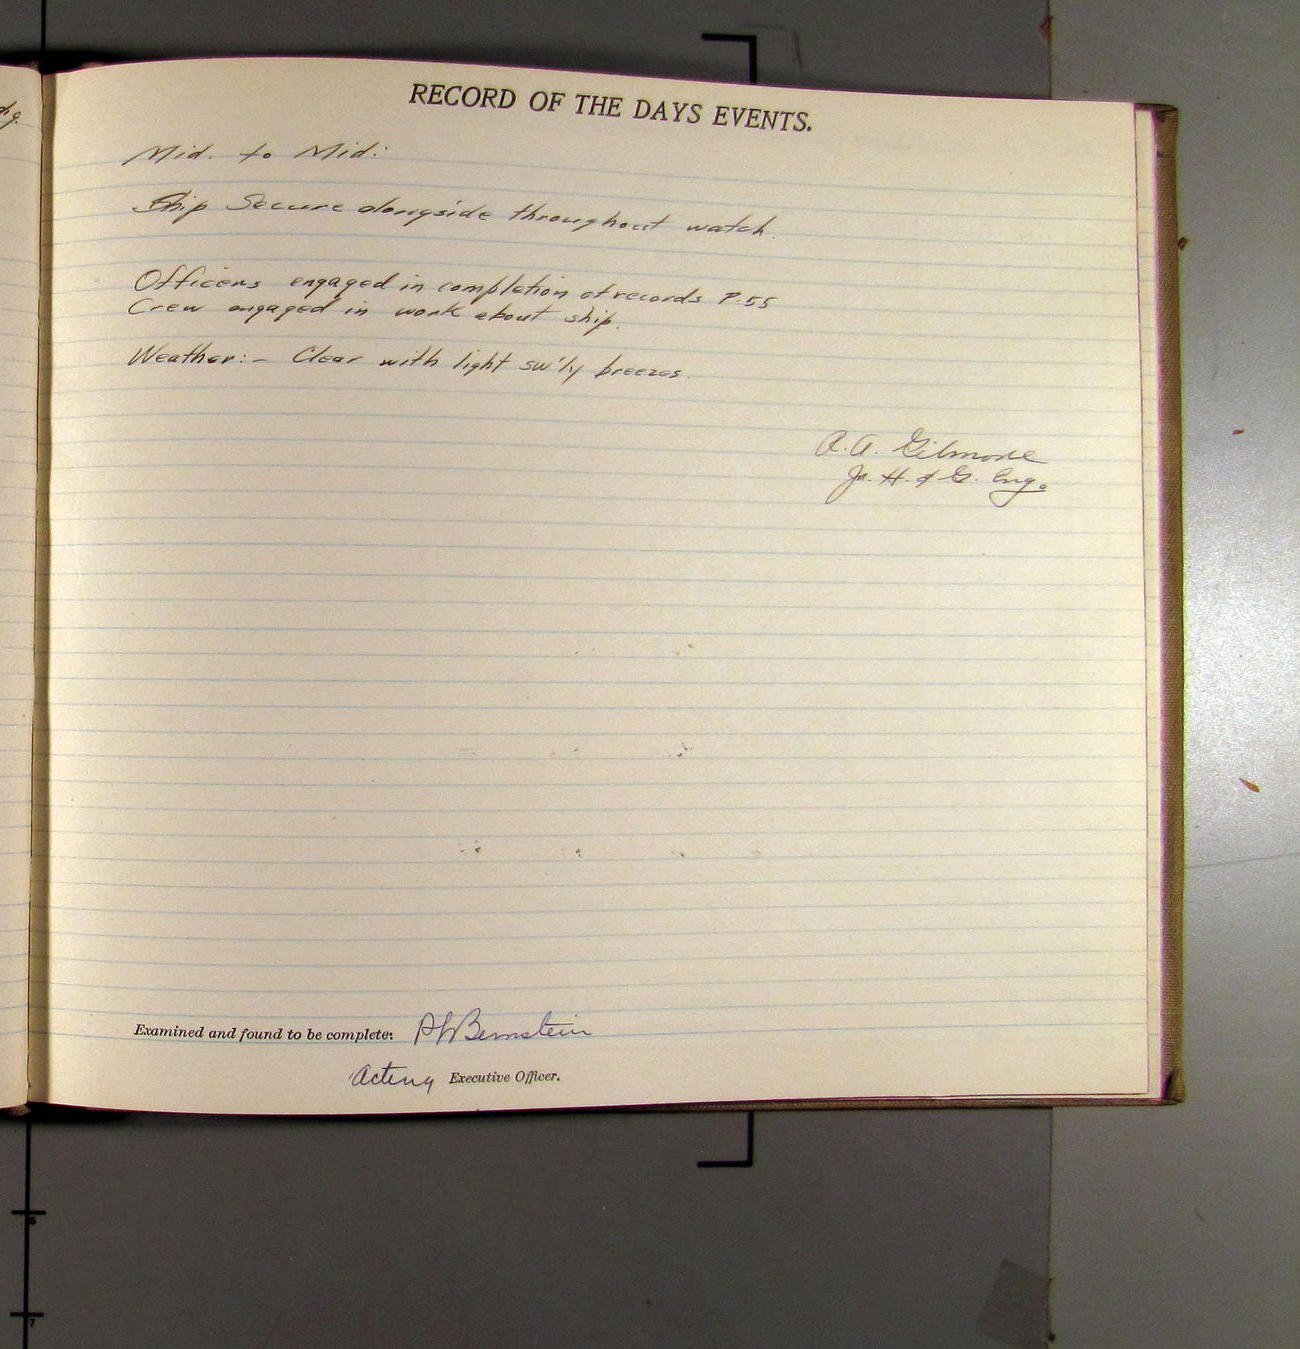 RECORD OF THE DAYS EVENTS.
Mid. to Mid:
Ship Secure alongside throughout watch.
Officers engaged in completion of records P.55
Crew engaged in work about ship.
Weather:- Clear with light sw'ly breezes.
R.A. Gilmore
Jr. H. & G. Eng.
Examined and found to be complete: Bernstein
Acting Executive Officer.
6
7